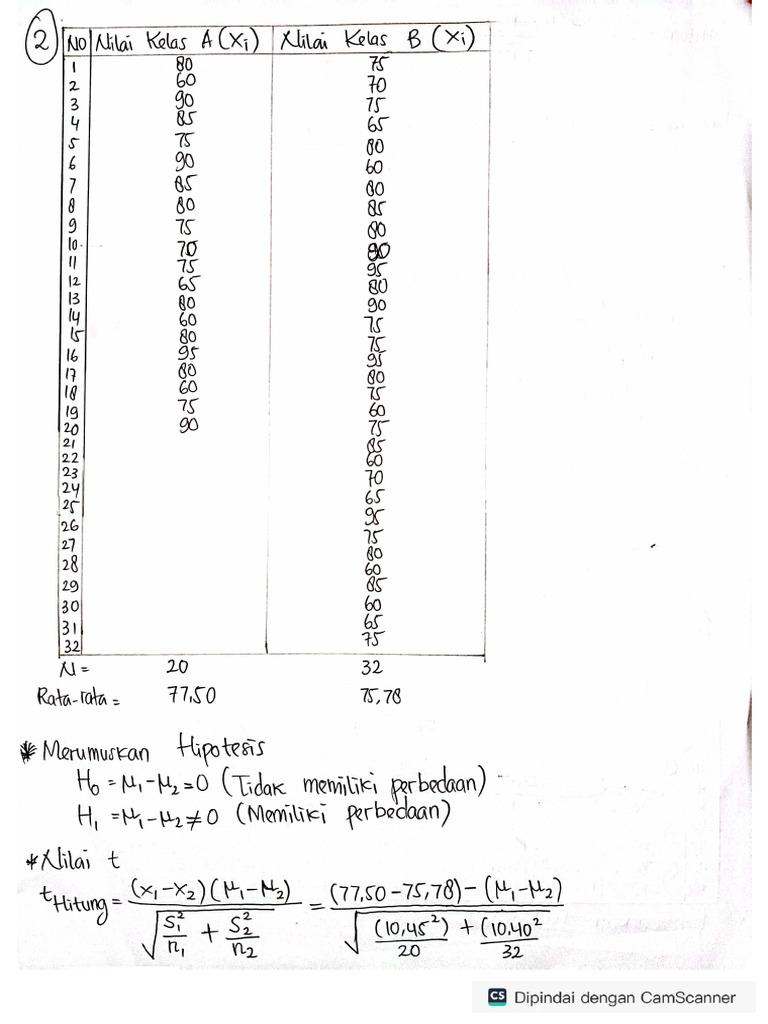 2
No Nilai Kelas A (Xi) Nilai Kelas B (Xi)
1 80 75
2 60 70
3 90 75
4 85 65
5 75 80
6 90 60
7 85 80
8 80 85
9 75 80
10. 70 90
11 75 95
12 65 80
13 80 90
14 60 75
15 80 75
16 95 95
17 80 80
18 60 75
19 75 60
20 90 75
21 85
22 60
23 70
24 65
25 95
26 75
27 80
28 60
29 85
30 60
31 65
32 75
N = 20 32
Rata-rata = 77,50 75,78
* Merumuskan Hipotesis
H₀ = μ₁-μ₂=0 (Tidak memiliki perbedaan)
H₁ = μ₁-μ₂≠0 (Memiliki perbedaan)
* Nilai t
t Hitung = (x₁-x₂)(μ₁-μ₂) / √(S₁²/n₁ + S₂²/n₂) = (77,50-75,78)-(μ₁-μ₂) / √((10,45²)/20 + (10,40²/32
CS Dipindai dengan CamScanner